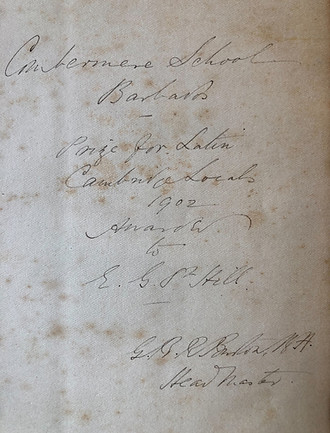 Combermere School
Barbados
Prize for Latin
Cambridge Locals
1902
Awarded
to
E. G. St Hill.
G. B. R.
Head Master.